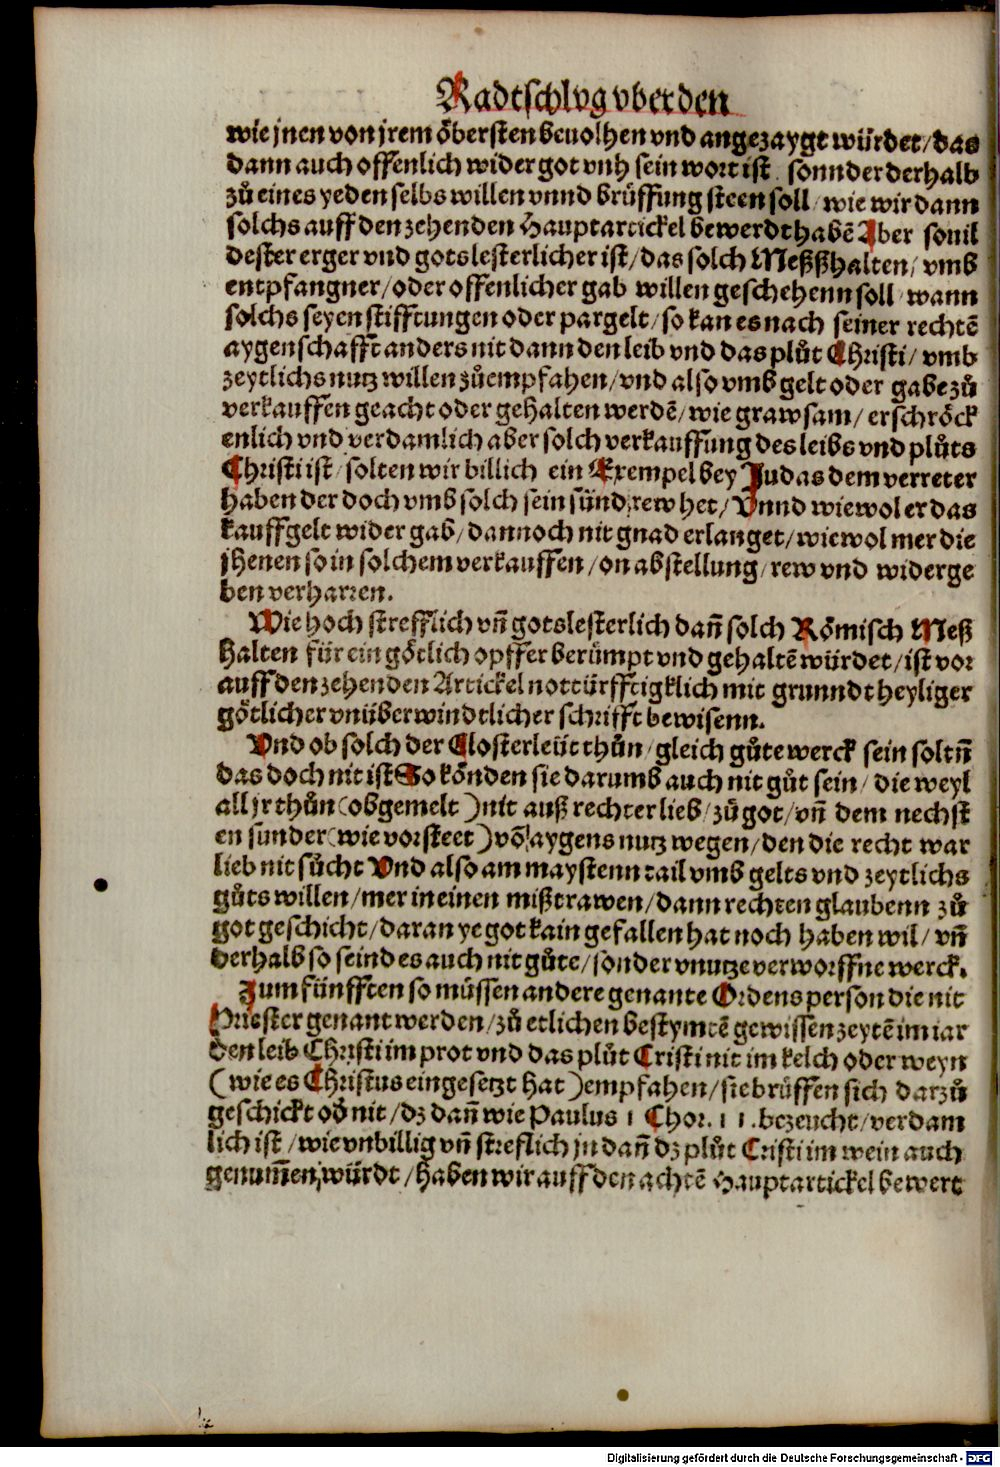 Radtschlvg vber den
wie jnen von jrem öbersten beuolhen vnd angezaygt würdet/ das
dann auch offenlich wider got vnh sein wort ist sonnder derhalb
zů eines yeden selbs willen vnnd brüffung steen soll/ wie wir dann
solchs auff den zehenden Hauptartickel bewerdt habē Aber souil
dester erger vnd gotslesterlicher ist/ das solch Meßßhalten/ vmb
entpfangner/ oder offenlicher gab willen geschehenn soll wann
solchs seyen stifftungen oder pargelt/ so kan es nach seiner rechtē
aygenschafft anders nit dann den leib vnd das plůt Christi/ vmb
zeytlichs nutz willen zůempfahen/ vnd also vmb gelt oder gabe zů
verkauffen geacht oder gehalten werdē/ wie grawsam/ erschröck
enlich vnd verdamlich aber solch verkauffung des leibs vnd plůts
Christi ist/ solten wir billich ein Exempel bey Judas dem verreter
haben der doch vmb solch sein sünd rew het/ Vnnd wiewol er das
kauffgelt wider gab/ dannoch nit gnad erlanget/ wiewol mer die
jhenen so in solchem verkauffen/ on abstellung/ rew vnd widerge
ben verharren.
Wie hoch strefflich vñ gotslesterlich dañ solch Römisch Meß
halten für ein götlich opffer berümpt vnd gehaltē würdet/ ist vor
auff den zehenden Artickel nottürfftigklich mit grunndt heyliger
götlicher vnüberwindtlicher schrifft bewisenn.
Vnd ob solch der Closterleüt thůn/ gleich gůte werck sein soltñ
das doch nit ist So könden sie darumb auch nit gůt sein/ die weyl
all jr thůn (obgemelt) nit auß rechter lieb/ zů got/ vñ dem nechst
en sunder (wie vorsteet) vō aygens nutz wegen/ den die recht war
lieb nit sůcht Vnd also am maystenn tail vmb gelts vnd zeytlichs
gůts willen/ mer in einen mißtrawen/ dann rechten glaubenn zů
got geschicht/ daran ye got kain gefallen hat noch haben wil/ vñ
derhalb so seind es auch nit gůte/ sonder vnutze verworffne werck.
Zum fünfften so müssen andere genante Ordens person die nit
Priester genant werden/ zů etlichen bestymtē gewissen zeytē im iar
den leib Christi im prot vnd das plůt Cristi nit im kelch oder weyn
(wie es Christus eingesetzt hat) empfahen/ sie brüffen sich darzů
geschickt oď nit/ dz dañ wie Paulus 1 Chor. 1 1. bezeucht/ verdam
lich ist/ wie vnbillig vñ streflich jn dañ dz plůt Cristi im wein auch
genum̄en würdt/ haben wir auff den achtē Hauptartickel bewert
Digitalisierung gefördert durch die Deutsche Forschungsgemeinschaft - DFG